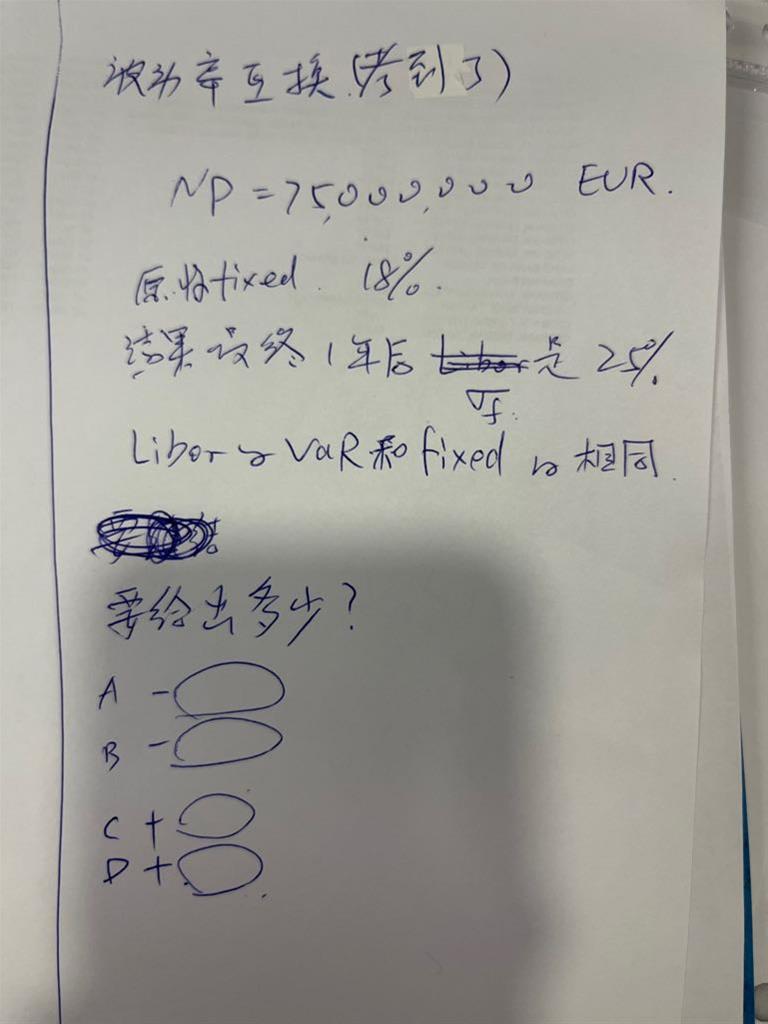 波动率互换(考到了)
NP = 75,000,000 EUR.
原.收fixed. 18%.
结果最终1年后 Libor 是 25%.
σf.
Libor的VaR和fixed的相同.
要给出多少?
A -
B -
C +
D +